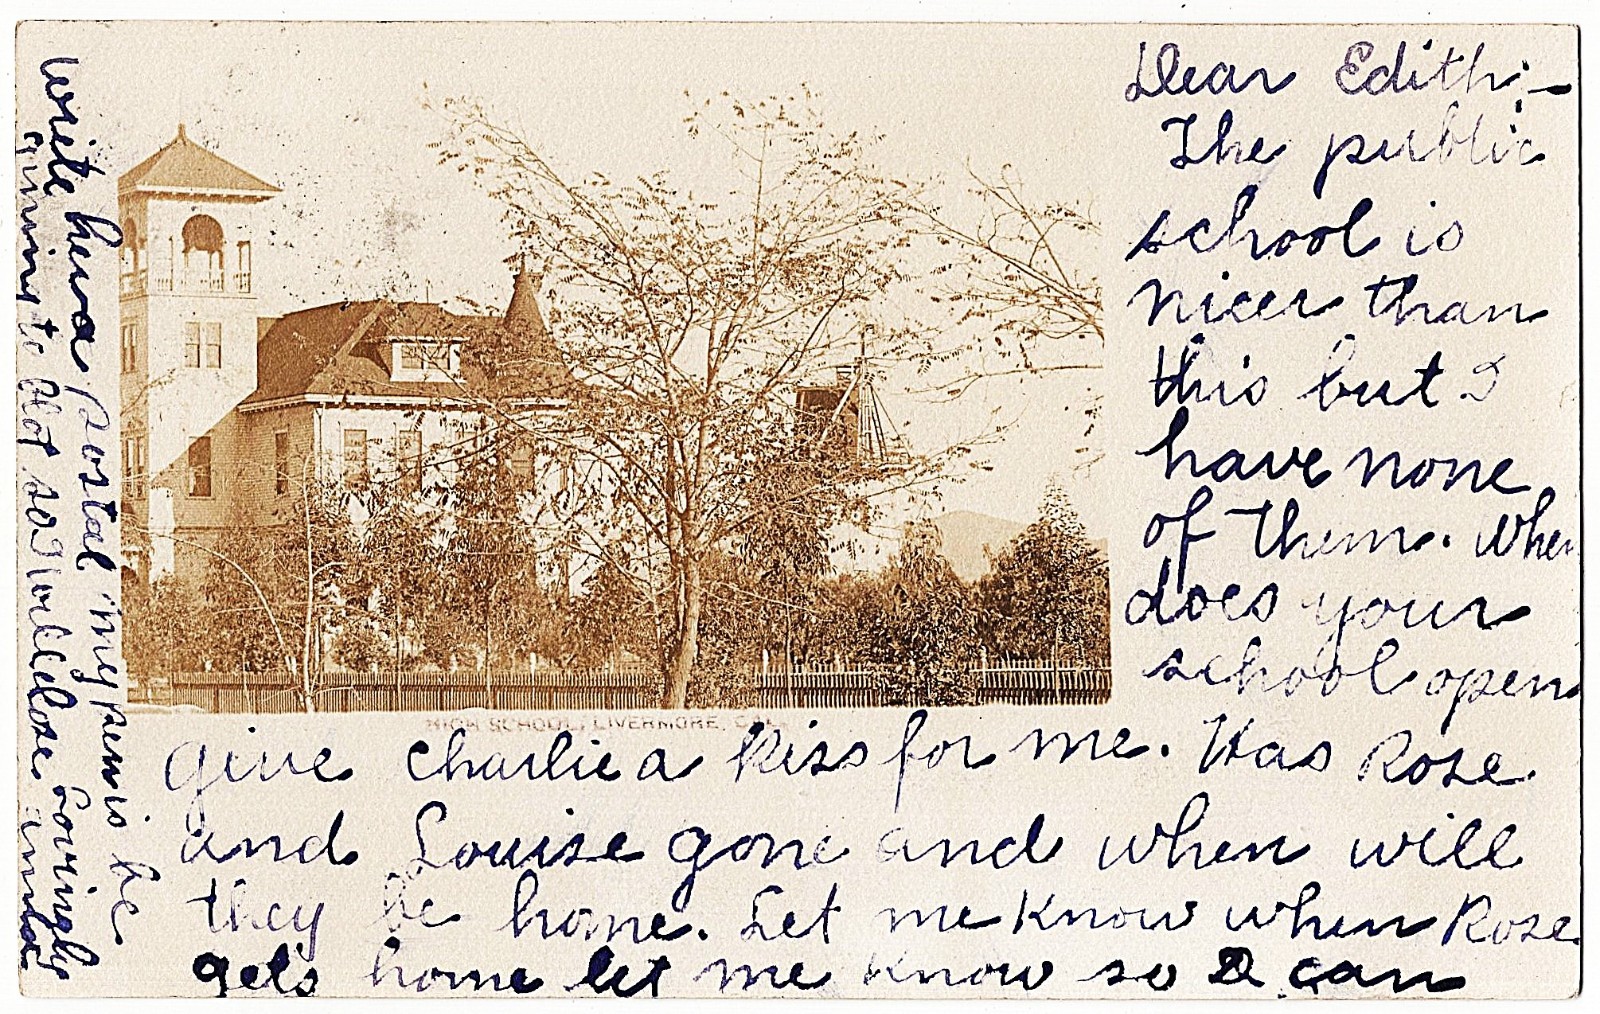 Dear Edith:-
The public
school is
nicer than
this but I
have none
of them. When
does your
school open
HIGH SCHOOL, LIVERMORE, CAL.
give charlie a kiss for me. Has Rose
and Louise gone and when will
they be home. Let me know when Rose
gets home let me know so I can
write her a postal my pen is be
ginning to blot so I will close. Lovingly